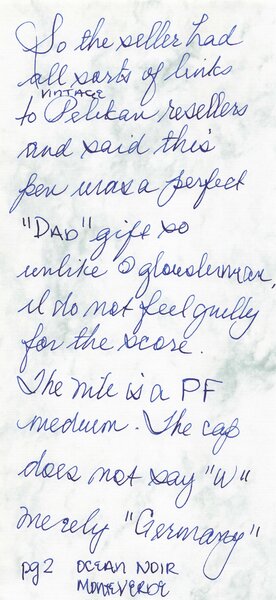 So the seller had
all sorts of links
VINTAGE
to Pelikan resellers
and said this
pen was a perfect
"DAD" gift so
unlike @gloucterman,
I do not feel guilty
for the score.
The nib is a PF
medium. The cap
does not say "W"
merely "Germany"
pg2 OCEAN NOIR
MONTEVERDE